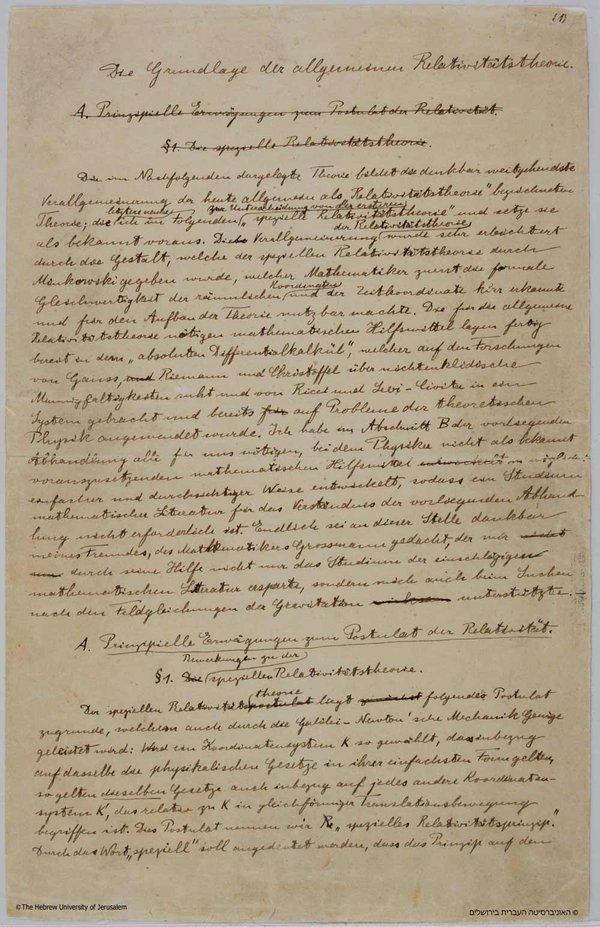 (1)
Die Grundlage der allgemeinen Relativitätstheorie.
A. Prinzipielle Erwägungen zum Postulat der Relativität.
§1. Die spezielle Relativitätstheorie.
Die im Nachfolgenden dargelegte Theorie bildet die denkbar weitgehendste
Verallgemeinerung der heute allgemein als „Relativitätstheorie" bezeichneten
letztere nenne zur Unterscheidung von der ersteren
Theorie; die ich im Folgenden „spezielle Relativitätstheorie" und setze sie
der Relativitätstheorie
als bekannt voraus. Die Verallgemeinerung wurde sehr erleichtert
durch die Gestalt, welche der speziellen Relativitätstheorie durch
Minkowski gegeben wurde, welcher Mathematiker zuerst die formale
Koordinaten
Gleichwertigkeit der räumlichen und der Zeitkoordinate klar erkannte
und für den Aufbau der Theorie nutzbar machte. Die für die allgemeine
Relativitätstheorie nötigen mathematischen Hilfsmittel lagen fertig
bereit in dem „absoluten Differentialkalkül", welcher auf den Forschungen
von Gauss, und Riemann und Christoffel über nichteuklidische
Mannigfaltigkeiten ruht und von Ricci und Levi-Civita in ein
System gebracht und bereits für auf Probleme der theoretischen
Physik angewendet wurde. Ich habe im Abschnitt B der vorliegenden
Abhandlung alle für uns nötigen, bei dem Physiker nicht als bekannt
vorauszusetzenden mathematischen Hilfsmittel entwickelt in möglichst
einfacher und durchsichtiger Weise entwickelt, sodass ein Studium
mathematischer Literatur für das Verständnis der vorliegenden Abhand-
lung nicht erforderlich ist. Endlich sei an dieser Stelle dankbar
meines Freundes, des Mathematikers Grossmann gedacht, der mir nicht
nur durch seine Hilfe nicht nur das Studium der einschlägigen
mathematischen Literatur ersparte, sondern mich auch beim Suchen
nach den Feldgleichungen der Gravitation unterstützte.
A. Prinzipielle Erwägungen zum Postulat der Relativität.
Bemerkungen zu der
§1. Die speziellen Relativitätstheorie.
theorie
Der speziellen Relativitätspostulat liegt folgendes Postulat
zugrunde, welchem auch durch die Galilei-Newton'sche Mechanik Genüge
geleistet wird: Wird ein Koordinatensystem K so gewählt, dass inbezug
auf dasselbe die physikalischen Gesetze in ihrer einfachsten Form gelten,
so gelten dieselben Gesetze auch inbezug auf jedes andere Koordinaten-
system K', das relativ zu K in gleichförmiger Translationsbewegung
begriffen ist. Dies Postulat nennen wir „spezielles Relativitätsprinzip."
Durch das Wort „speziell" soll angedeutet werden, dass das Prinzip auf den
© The Hebrew University of Jerusalem
© האוניברסיטה העברית בירושלים